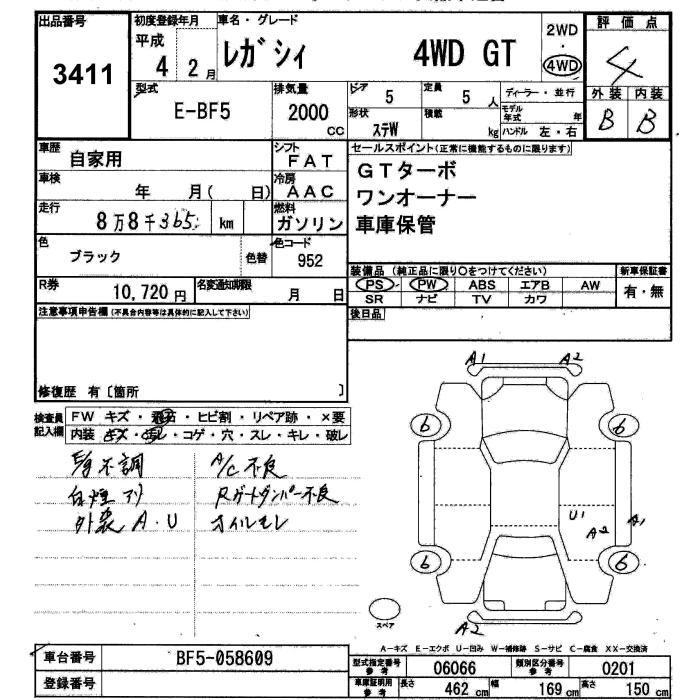 出品番号
3411
初度登録年月
平成
4 2月
車名・グレード
レガシィ 4WD GT
2WD
・
4WD
評価点
4
外装 内装
B B
型式
E-BF5
排気量
2000
CC
ドア
5
定員
5 人
ディーラー・並行
モデル年式 年
形状
ステW
積載
kg
ハンドル 左・右
車歴
自家用
シフト
FAT
車検
年 月( 日)
冷房
AAC
走行
8万8千365 km
燃料
ガソリン
色
ブラック
色替
色コード
952
R券
10,720円
名変通知期限
月 日
セールスポイント(正常に機能するものに限ります)
GTターボ
ワンオーナー
車庫保管
装備品(純正品に限り〇をつけてください)
PS PW ABS エアB AW
SR ナビ TV カワ
新車保証書
有・無
後日品
注意事項申告欄(不具合内容等は具体的に記入して下さい)
修復歴 有〔箇所 〕
検査員記入欄
FW キズ・飛石・ヒビ割・リペア跡・×要
内装 キズ・汚レ・コゲ・穴・スレ・キレ・破レ
E/g不調 A/C不良
白煙アリ Rゲートダンパー不良
外装 A・U オイルモレ
A1 A2
6 6
U1 A2 A1
6 6
スペア
A2
A-キズ E-エクボ U-凹み W-補修跡 S-サビ C-腐食 XX-交換済
車台番号
BF5-058609
登録番号
型式指定番号
参考
06066
類別区分番号
参考
0201
車庫証明用
参考
長さ 462 cm 幅 169 cm 高さ 150 cm